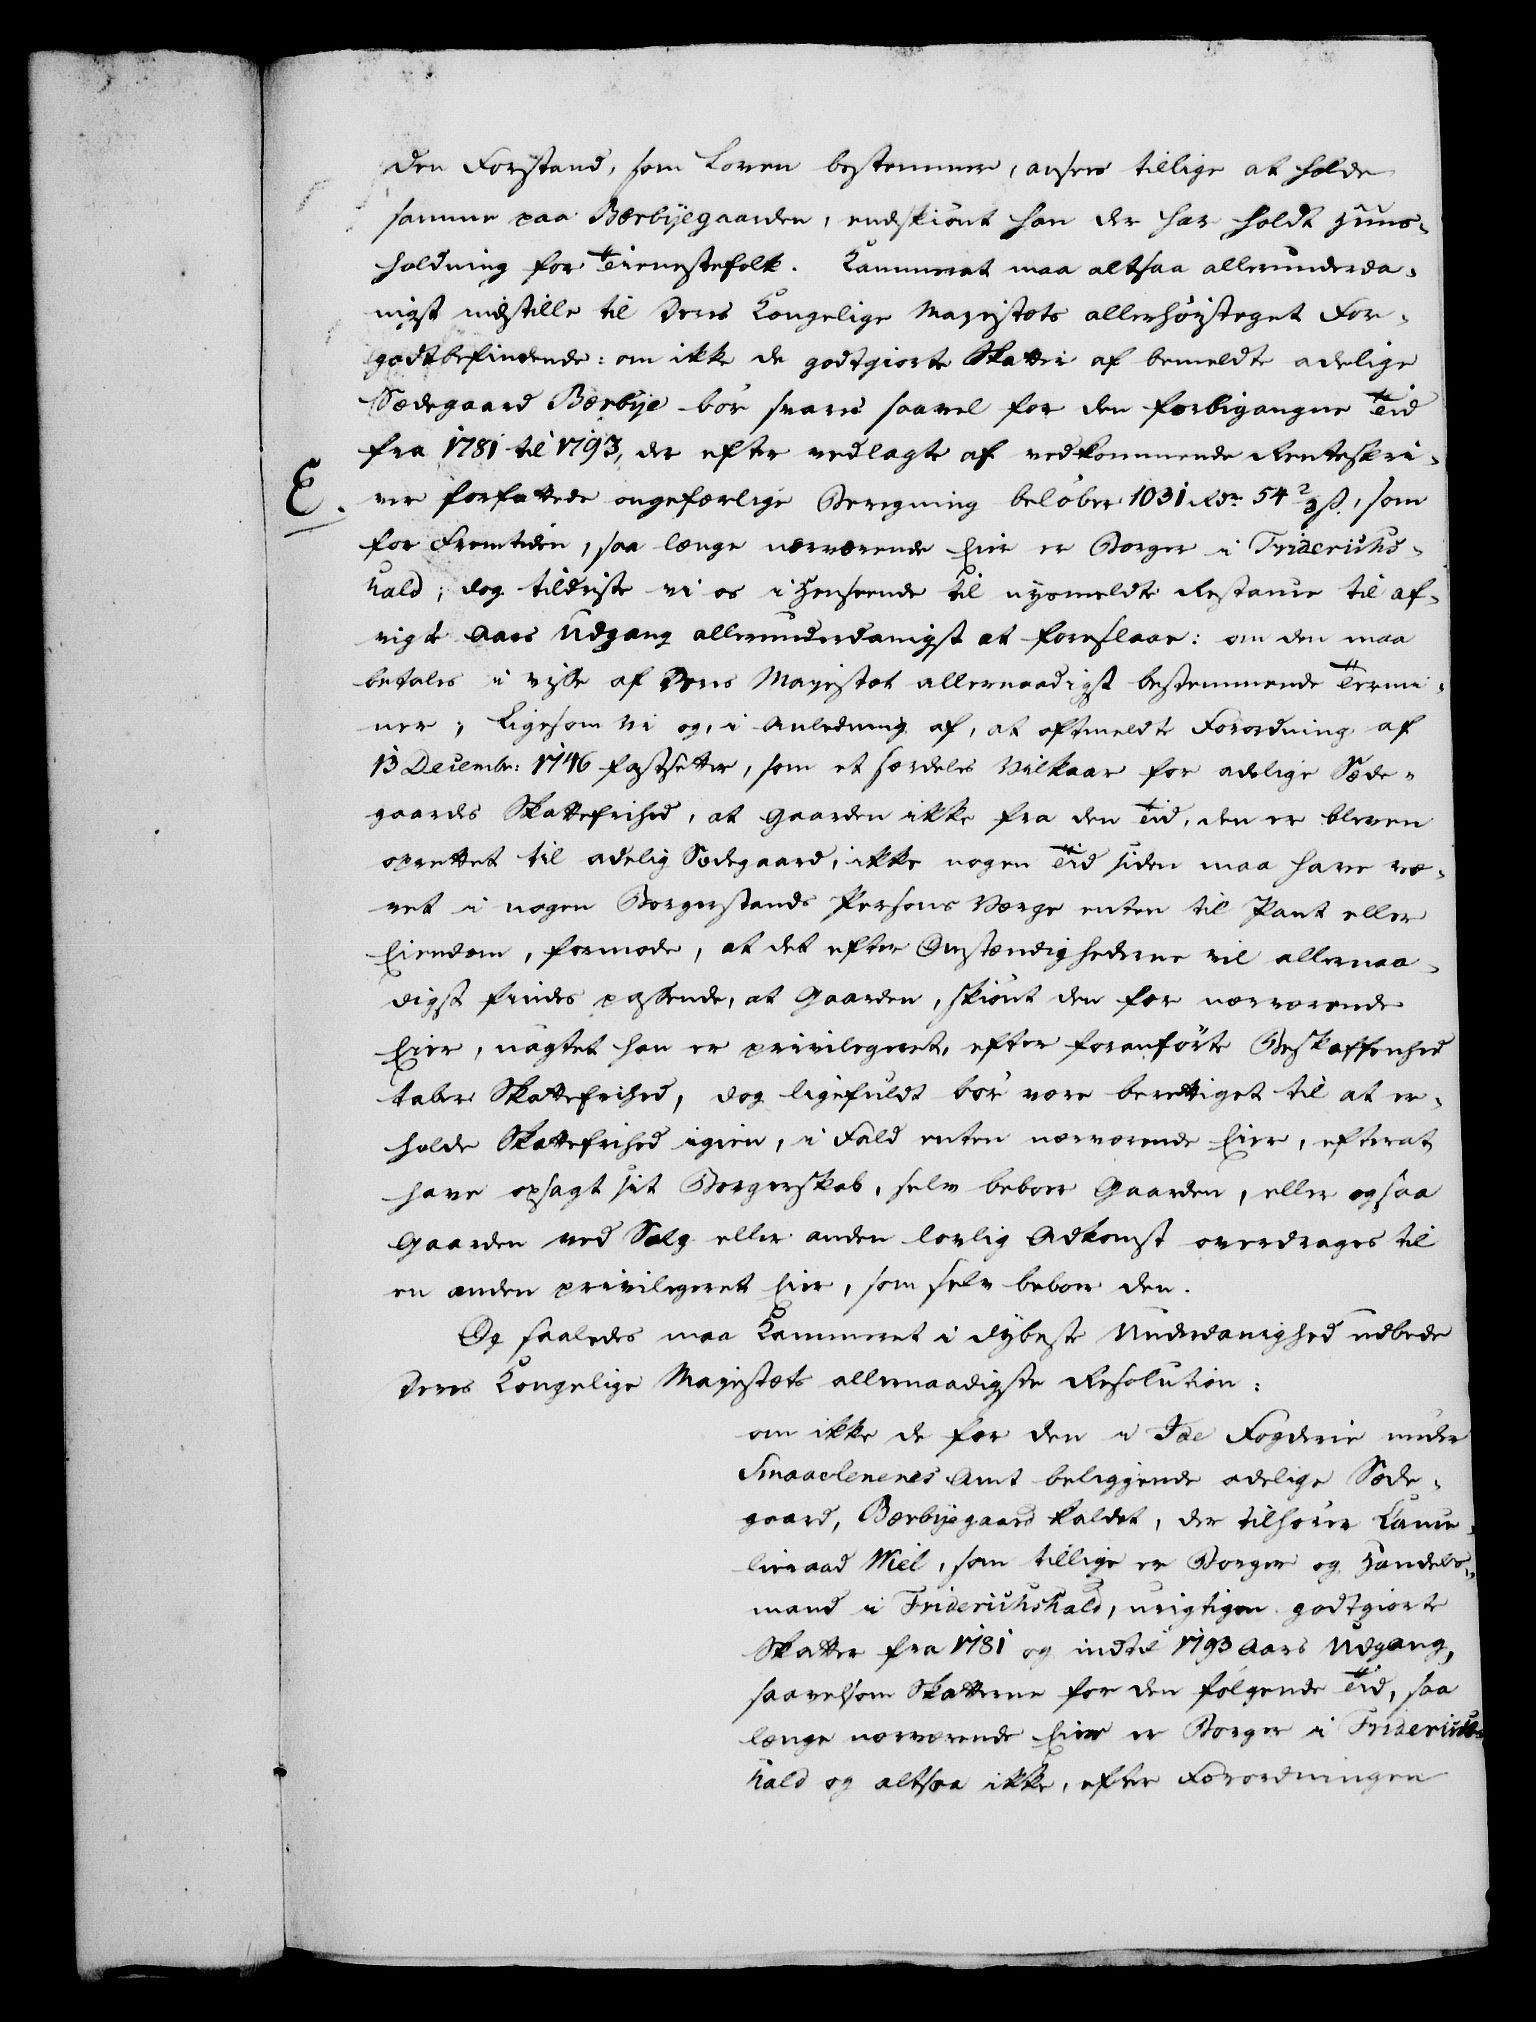 den Forstand, som Loven bestemmer, ansees tillige at holde
samme paa Bærbyegaarden, endskiönt han der har holdt Huus-
holdning for Tienestefolk. Kammeret maa altsaa allerunderda-
nigst indstille til Deres Kongelige Majestæts allerhöisteget For-
godtbefindende: om ikke de godtgiorte Skatter af bemeldte adelige
Sædegaard Bærbye bör svares saavel for den forbigangne Tid
fra 1781 til 1793, der efter vedlagte af vedkommende Renteskri-
E. ver forfattede ongefærlige Beregning belöber 1031 Rdr 54 2/3 ß., som
for Fremtiden, saa længe nærværende Eier er Borger i Friderichs-
hald; dog tildriste vi os i Henseende til nysmeldte Restance til af-
vigte Aars Udgang allerunderdanigst at foreslaae: om den maa
betales i visse af Deres Majestæt allernaadigst bestemmende Termi-
ner; Ligesom vi og, i Anledning af, at oftmeldte Forordning af
13 Decembr: 1746 fastsætter, som et særdeles Vilkaar for adelige Sæde-
gaardes Skattefrihed, at Gaarden ikke fra den Tid, den er bleven
oprettet til adelig Sædegaard, ikke nogen Tid siden maa have væ-
ret i nogen Borgerstands Persons Værge enten til Pant eller
Eiendom, formode, at det efter Omstændighederne vil allernaa-
digst findes passende, at Gaarden, skiönt den for nærværende
Eier, uagtet han er privilegeret, efter foranförte Beskaffenhed
taber Skattefrihed, dog ligefuldt bör være berettiget til at er-
holde Skattefrihed igien, i Fald enten nærværende Eier, efterat
have opsagt sit Borgerskab, selv beboer Gaarden, eller ogsaa
Gaarden ved Salg eller anden lovlig Adkomst overdrages til
en anden privilegeret Eier, som selv beboer den.
Og saaledes maa Kammeret i dybeste Underdanighed udbede
Deres Kongelige Majestæts allernaadigste Resolution:
om ikke de for den i Ide Fogderie under
Smaaelenenes Amt beliggende adelige Sæde-
gaard, Bærbyegaard kaldet, der tilhörer Cance-
lieraad Wiel, som tillige er Borger og Handels-
mand i Friderichshald, urigtigen godtgiorte
Skatter fra 1781 og indtil 1793 Aars Udgang,
saavelsom Skatterne for den fölgende Tid, saa
længe nærværende Eier er Borger i Friderichs-
hald og altsaa ikke, efter Forordningen